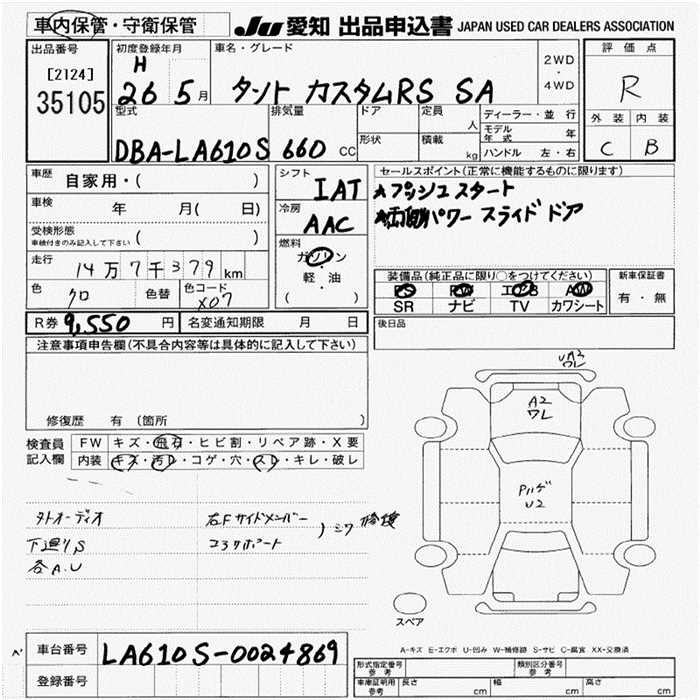 車内保管・守衛保管
JU 愛知 出品申込書 JAPAN USED CAR DEALERS ASSOCIATION
出品番号
[2124]
35105
初度登録年月
H
26 5 月
車名・グレード
タント カスタムRS SA
2WD
・
4WD
評価点
R
外装 内装
C B
型式
DBA-LA610S
排気量
660 CC
ドア
形状
定員
人
積載
kg
ディーラー・並行
モデル年式 年
ハンドル 左・右
車歴 自家用・( )
車検 年 月( 日)
受検形態
車検付きのみ記入して下さい ( )
走行 14万7千379km
色 クロ 色替 色コード X07
R券 9,550 円 名変通知期限 月 日
シフト
IAT
冷房
AAC
燃料
ガソリン
軽・油
( )
セールスポイント(正常に機能するものに限ります)
★プッシュスタート
★両側パワースライドドア
装備品(純正品に限り○をつけてください)
PS PW エアB AW
SR ナビ TV カワシート
新車保証書
有・無
後日品
注意事項申告欄(不具合内容等は具体的に記入して下さい)
修復歴 有 (箇所 )
検査員記入欄
FW キズ・飛石・ヒビ割・リペア跡・X要
内装 キズ・汚レ・コゲ・穴・スレ・キレ・破レ
タトオーディオ
下廻りS
各A.U
右Fサイドメンバー
コアサポート
)シワ 修復
UA2
WL
A2
WL
Pハゲ
U2
スペア
A-キズ E-エクボ U-凹み W-補修跡 S-サビ C-腐食 XX-交換済
車台番号 LA610S-0024869
登録番号
型式指定番号 参考
類別区分番号 参考
車庫証明用 参考 長さ cm 幅 cm 高さ cm